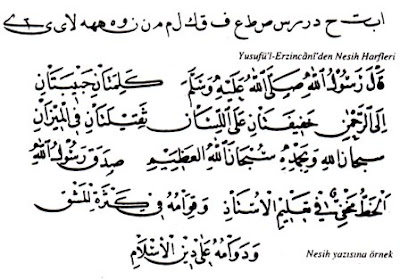 ا ب ت ح د ر س ص ط ع ف ق ك ل م ن و ه هه لا ى ے
Yusufü'l-Erzincânî'den Nesih Harfleri
قَالَ رَسُولُ اللهِ صَلَّى اللهُ عَلَيْهِ وَسَلَّمَ كَلِمَتَانِ حَبِيبَتَانِ
اِلَى الرَّحْمٰنِ خَفِيفَتَانِ عَلَى اللِّسَانِ ثَقِيلَتَانِ فِي الْمِيزَانِ
سُبْحَانَ اللهِ وَبِحَمْدِهِ سُبْحَانَ اللهِ الْعَظِيمِ صَدَقَ رَسُولُ اللهِ
اَلْخَطُّ مَخْفِيٌّ فِي تَعْلِيمِ الْاُسْتَاذِ وَقِوَامُهُ فِي كَثْرَةِ الْمَشْقِ
وَدَوَامُهُ عَلَى دِينِ الْاِسْلَامِ
Nesih yazısına örnek